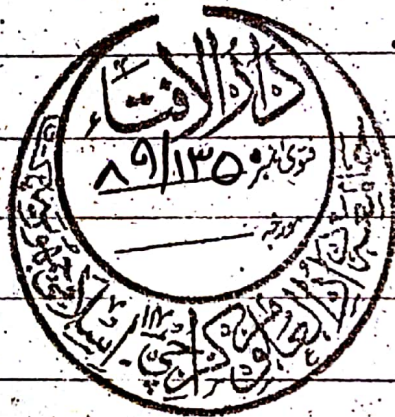 دارُ الافتاء
فتویٰ نمبر ۸۹/۱۳۵۰
مورخہ
جامعہ دارالعلوم کراچی ۱۴ - اسلامی جمہوریہ پاکستان